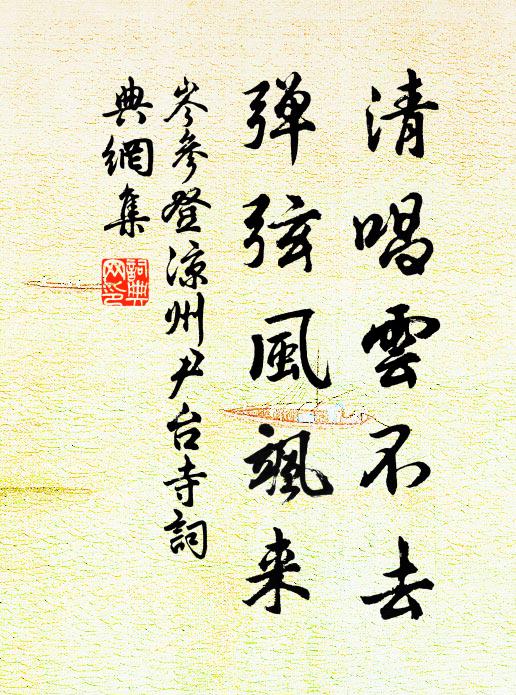 清唱雲不去
弹弦風飒来
岑参登凉州尹台寺詞
典網集
詞典
网印